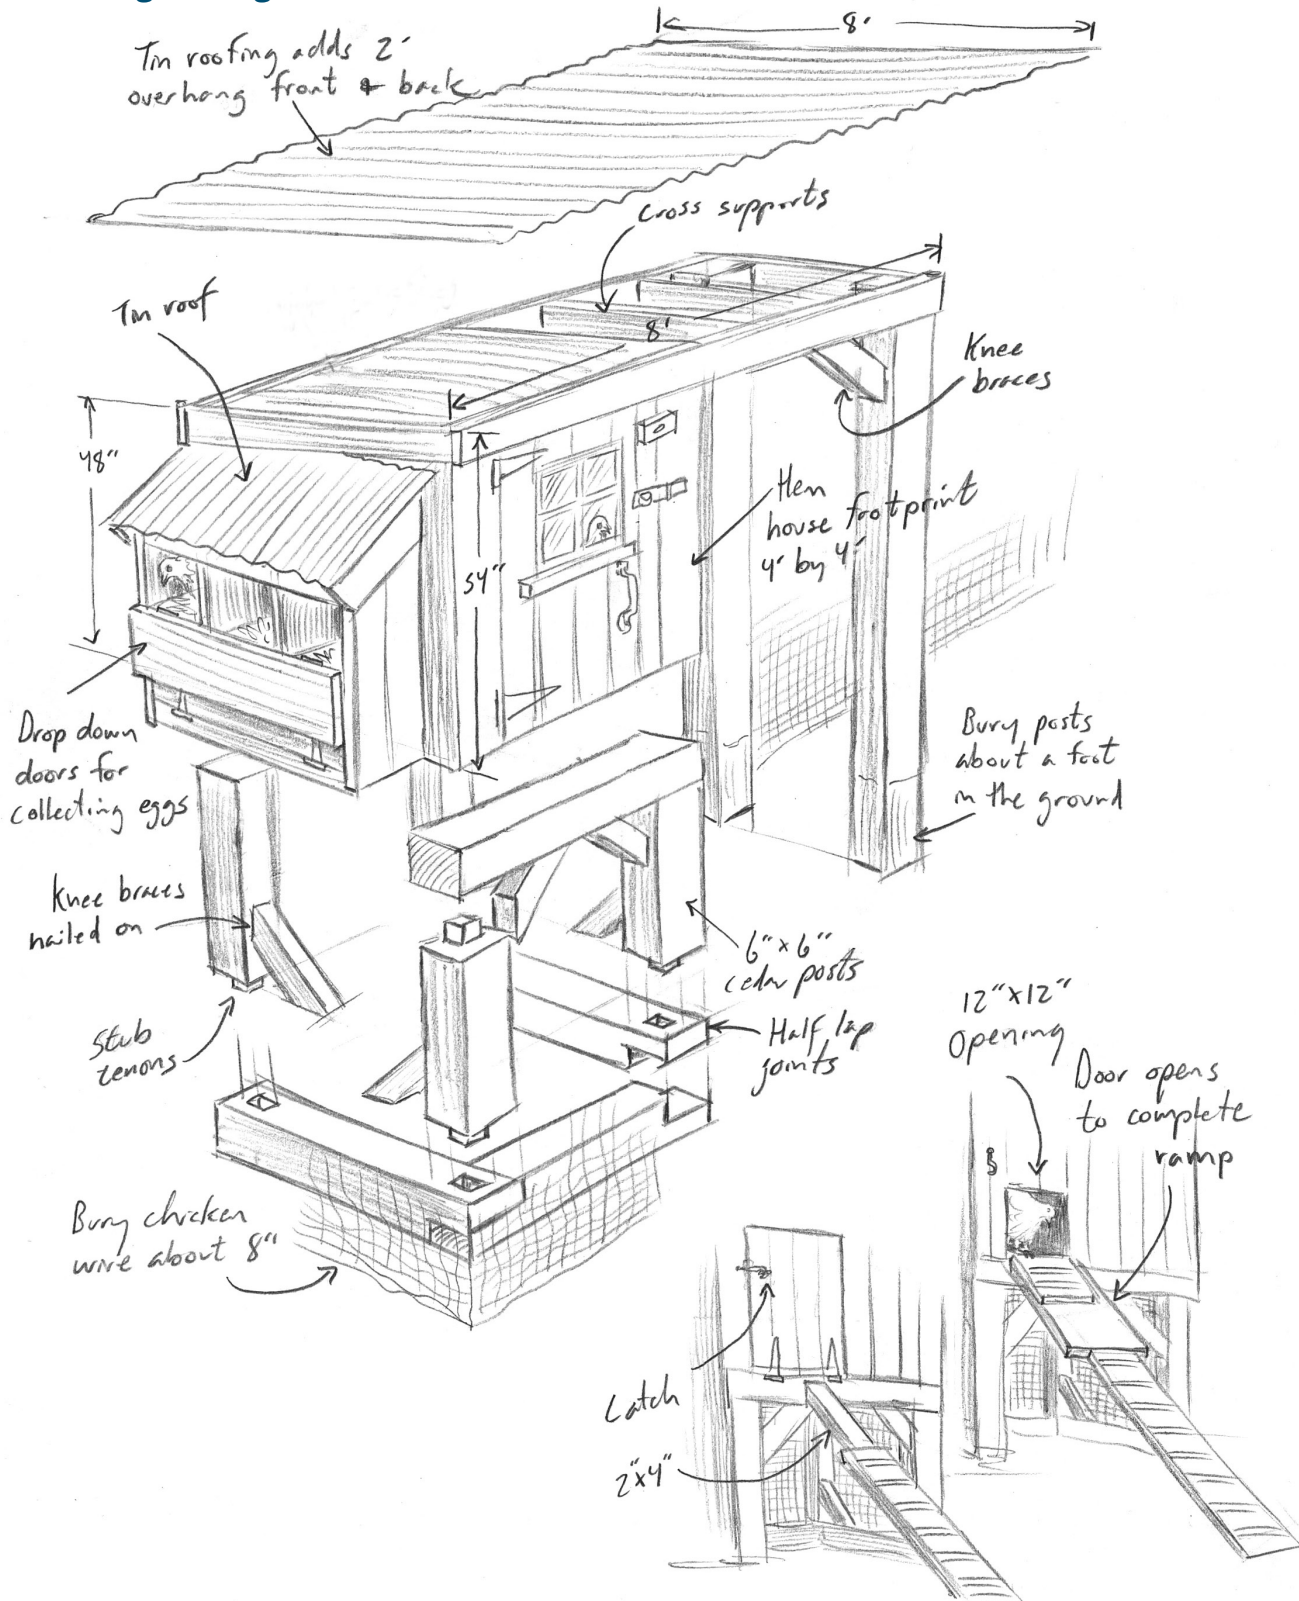 8'
Tin roofing adds 2'
overhang front & back
cross supports
Tin roof
8'
Knee
braces
48"
54"
Hen
house footprint
4' by 4'
Drop down
doors for
collecting eggs
Bury posts
about a foot
in the ground
Knee braces
nailed on
6"x6"
cedar posts
12"x12"
Opening
Stub
tenons
Half lap
joints
Door opens
to complete
ramp
Bury chicken
wire about 8"
Catch
2"x4"